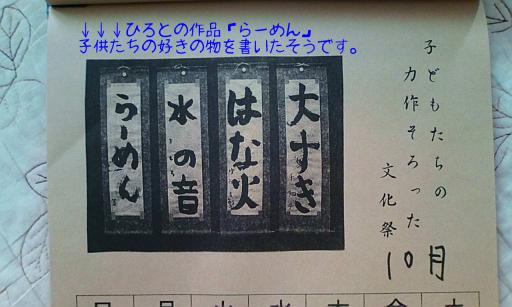 ↓↓↓ひろとの作品『らーめん』
子供たちの好きの物を書いたそうです。
子どもたちの
力作そろった
文化祭
10月
大すき
はな火
水の音
らーめん
日 月 火 水 木 金 土